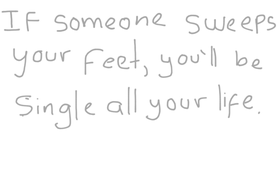 If someone sweeps
your feet, you'll be
single all your life.